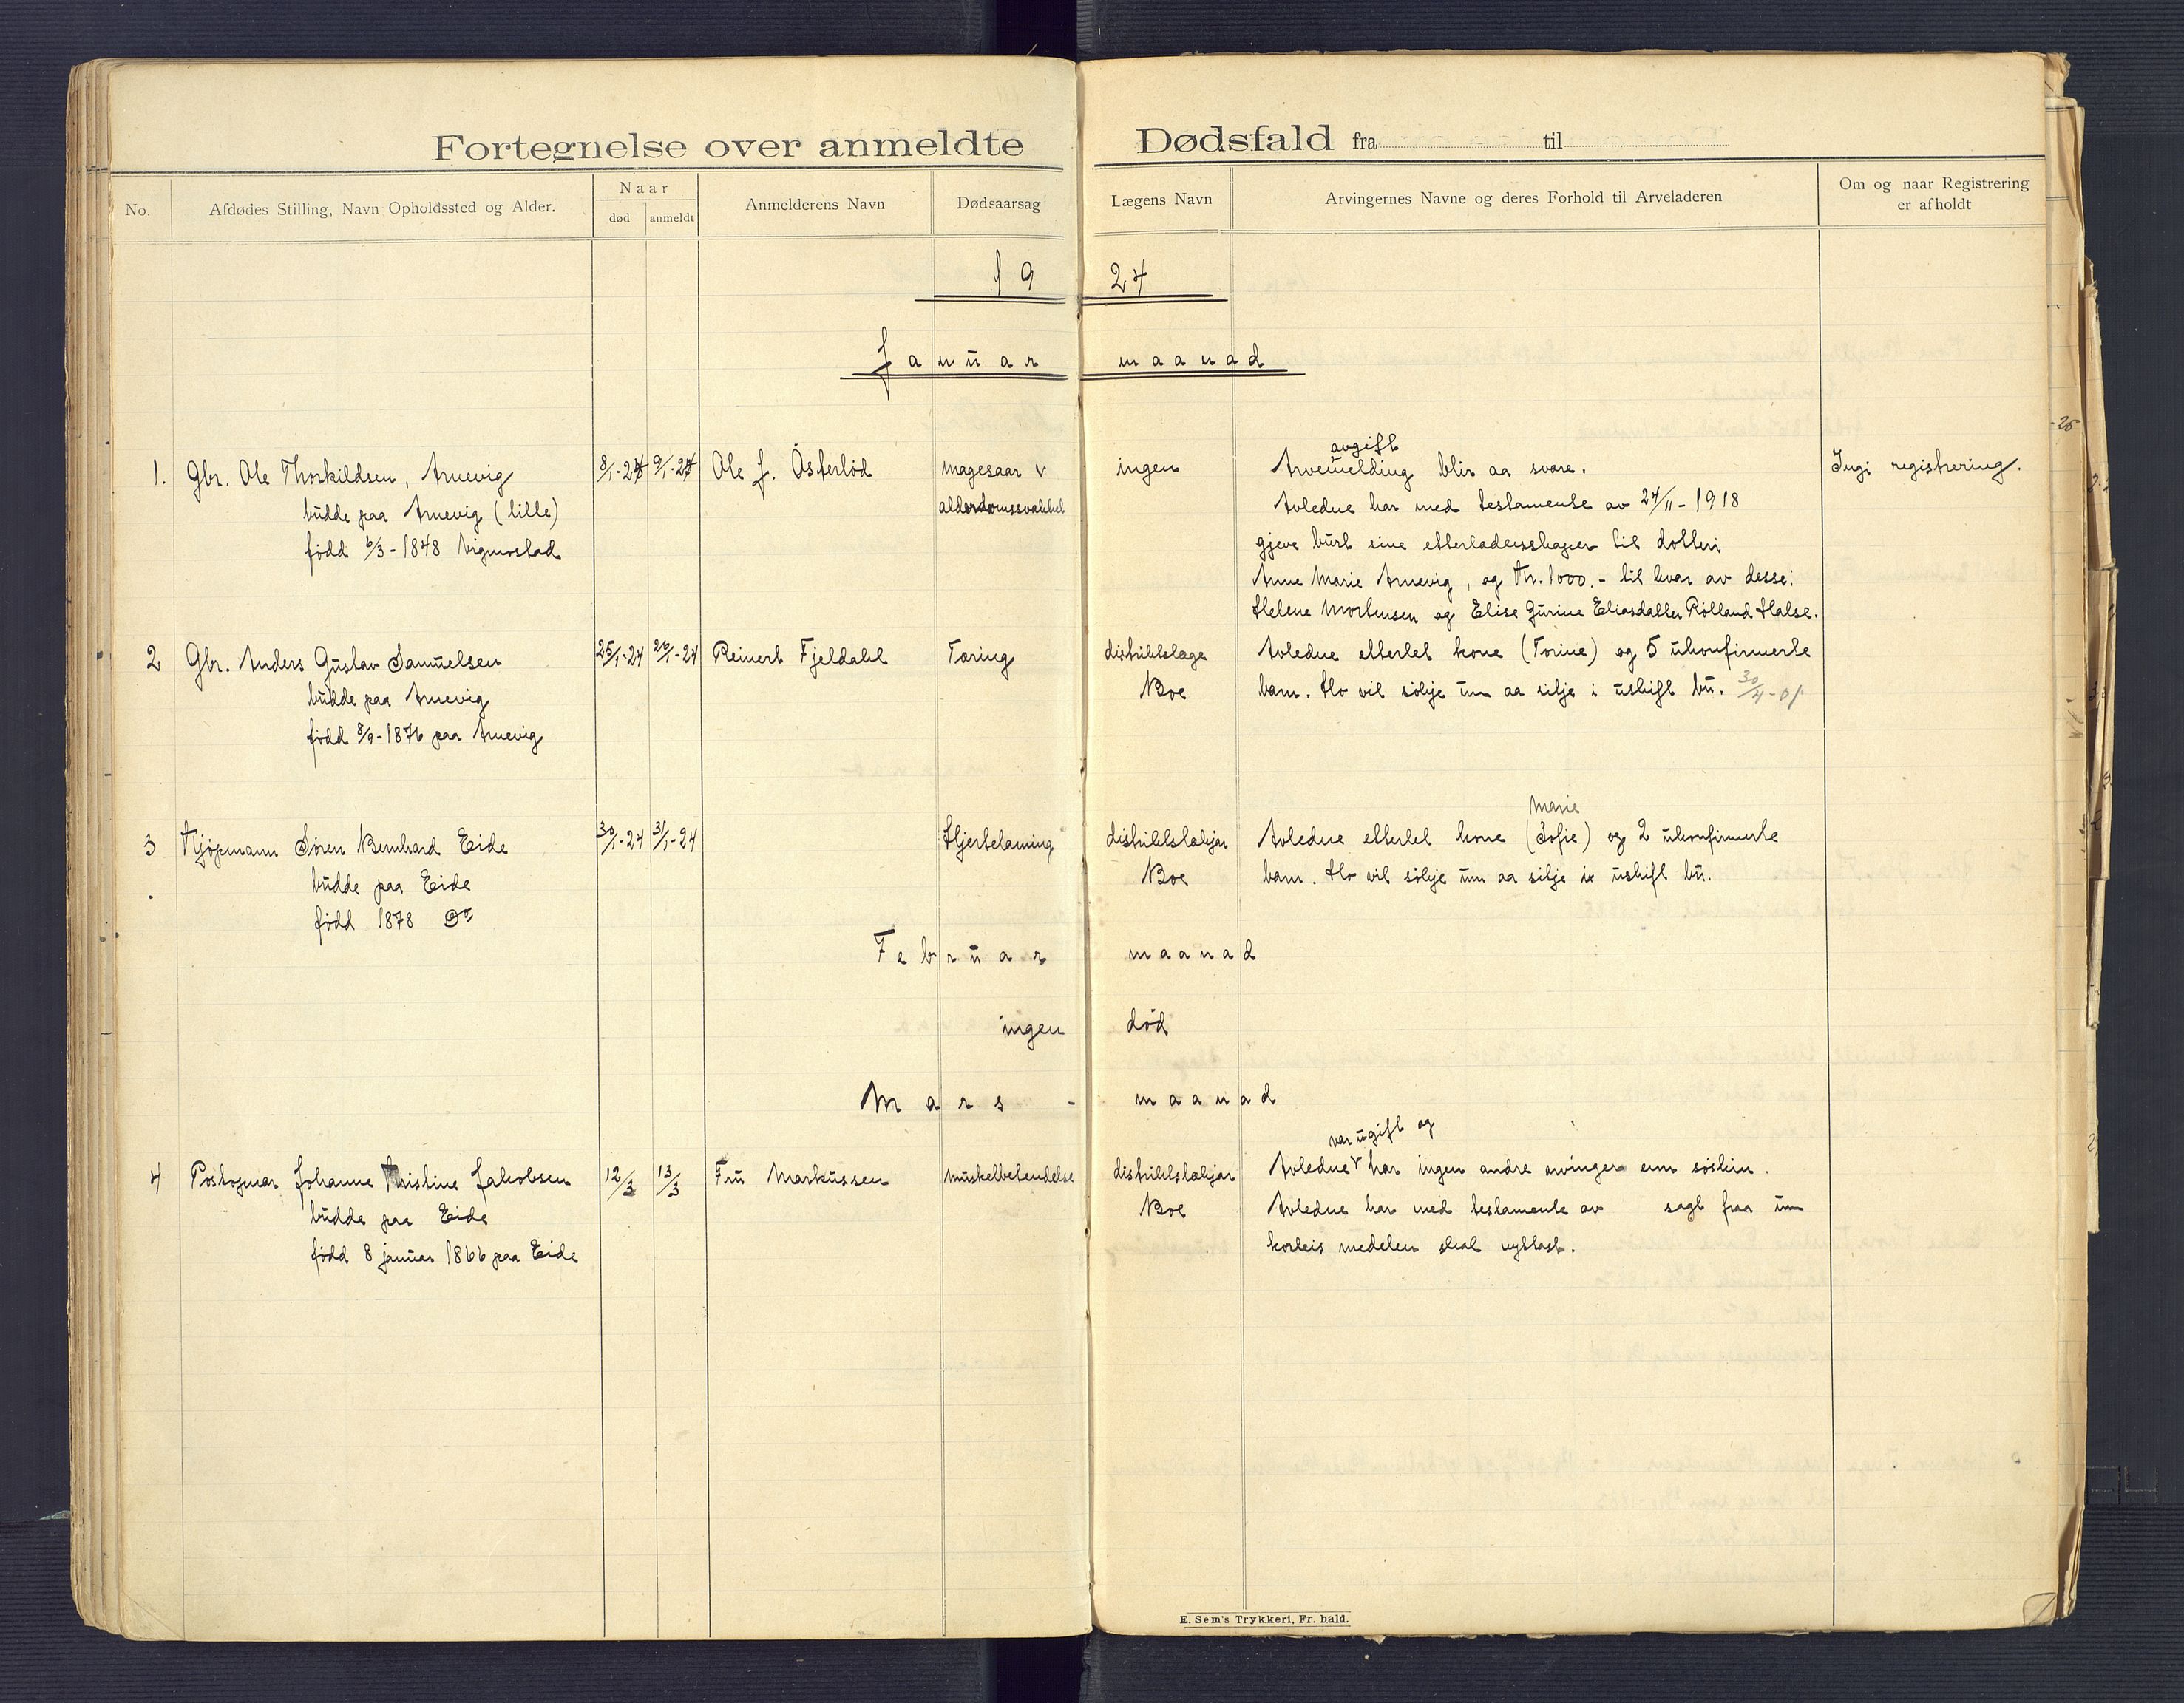 Fortegnelse over anmeldte Dødsfald fra til
No.
Afdødes Stilling, Navn Opholdssted og Alder.
Naar
død
anmeldt
Anmelderens Navn
Dødsaarsag
Lægens Navn
Arvingernes Navne og deres Forhold til Arveladeren
Om og naar Registrering
er afholdt
1924
Januar maanad
1. Gbr. Ole Thorkildsen, Arnevig
budde paa Arnevig (lille)
född 6/3-1848 Vigmostad
8/1-24
9/1-24
Ole J. Österlöd
magesaar
alderdomssvakhet
ingen
avgift
Arvemelding blir aa svare.
Avledne har med testamente av 24/11-1918
gjeve burt sine etterladenskaper til dotteri
Anne Marie Arnevig, og Kr. 1000.- til kvar av desse:
Helene Mortensen og Elise Gurine Eliasdatter Rölland Halse.
Ingi registrering.
2 Gbr. Anders Gustav Samuelsen
budde paa Arnevig
född 8/9-1876 paa Arnevig
25/1-24
26/1-24
Reinert Fjeldahl
Tæring
distriktslæge
Boe
Avledne etterlet kone (Torine) og 5 ukonfirmerte
barn. Ho vil sökje um aa sitje i uskift bu. 30/4-01
3 Kjöpmann Sören Bernhard Eide
budde paa Eide
född 1878 do
30/1-24
31/1-24
Hjertelamming
distriktslækjar
Boe
Marie
Avledne etterlet kone (Sofie) og 2 ukonfirmerte
barn. Ho vil sökje um aa sitje i uskift bu.
Februar maanad
ingen död
Mars - maanad
4 Postopnar Johanne Kristine Jakobsen
budde paa Eide
född 8 januar 1866 paa Eide
12/3
13/3
Fru Markussen
muskelbetendelse
distriktslækjar
Boe
var ugift og
Avledne har ingen andre arvinger enn söskin.
Avledne har med testamente av sagt fraa um
korleis medelen skal nyttast.
E. Sem's Trykkeri, Fr. hald.